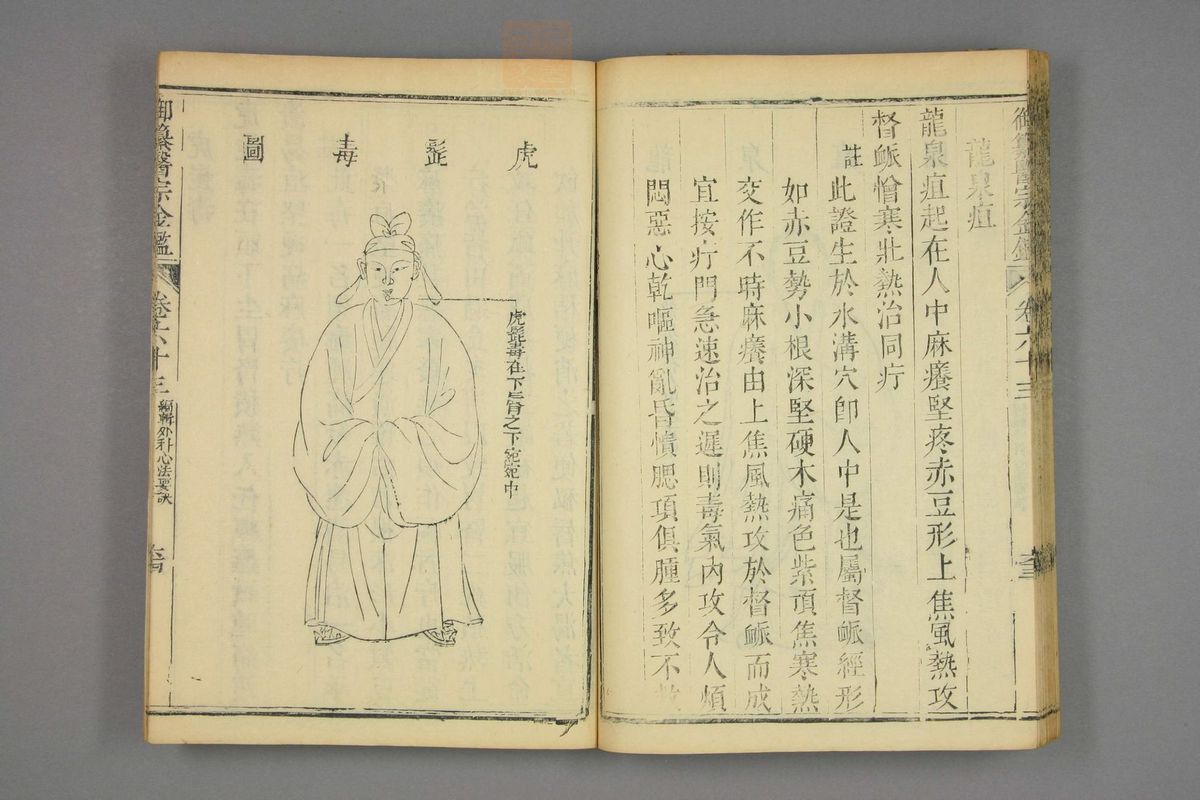 御纂醫宗金鑑
卷六十三
龍泉疽
龍泉疽起在人中麻癢堅疼赤豆形上焦風熱攻
督脈憎寒壯熱治同疔
註此證生於水溝穴卽人中是也屬督脈經形
如赤豆勢小根深堅硬木痛色紫頂焦寒熱
交作不時麻癢由上焦風熱攻於督脈而成
宜按疔門急速治之遲則毒氣內攻令人煩
悶惡心乾嘔神亂昏憒腮項俱腫多致不救
虎髭毒圖
虎髭毒在下唇之下宛宛中
御纂醫宗金鑑
卷六十三
編輯外科心法要訣